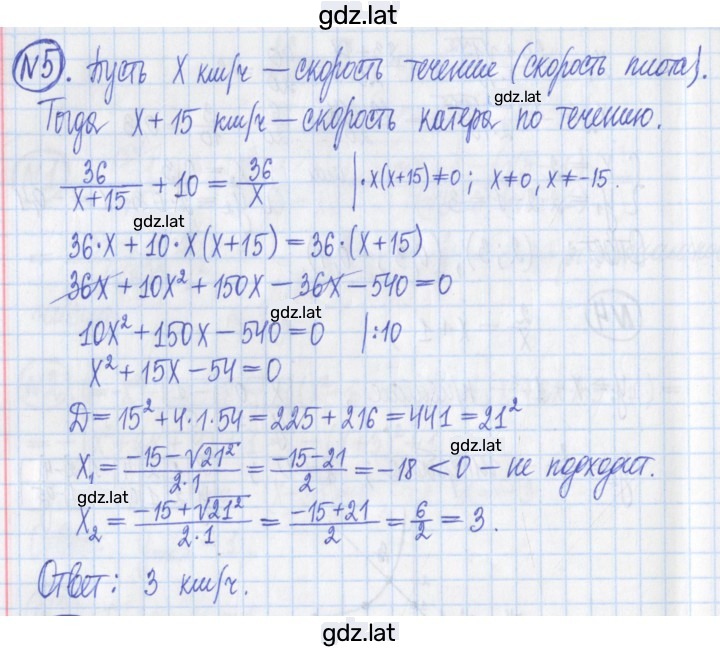 gdz.lat
№5. Пусть x км/ч — скорость течение (скорость плота).
gdz.lat
Тогда x+15 км/ч — скорость катера по течению.
36/(x+15) + 10 = 36/x |·x(x+15)≠0; x≠0, x≠-15.
gdz.lat
36·x+10·x(x+15)=36·(x+15)
36x+10x²+150x-36x-540=0
gdz.lat
10x²+150x-540=0 |:10
x²+15x-54=0
D=15²+4·1·54=225+216=441=21²
gdz.lat
x₁=(-15-√21²)/(2·1)=(-15-21)/2=-18<0 – не подходит.
gdz.lat
x₂=(-15+√21²)/(2·1)=(-15+21)/2=6/2=3.
Ответ: 3 км/ч.
gdz.lat